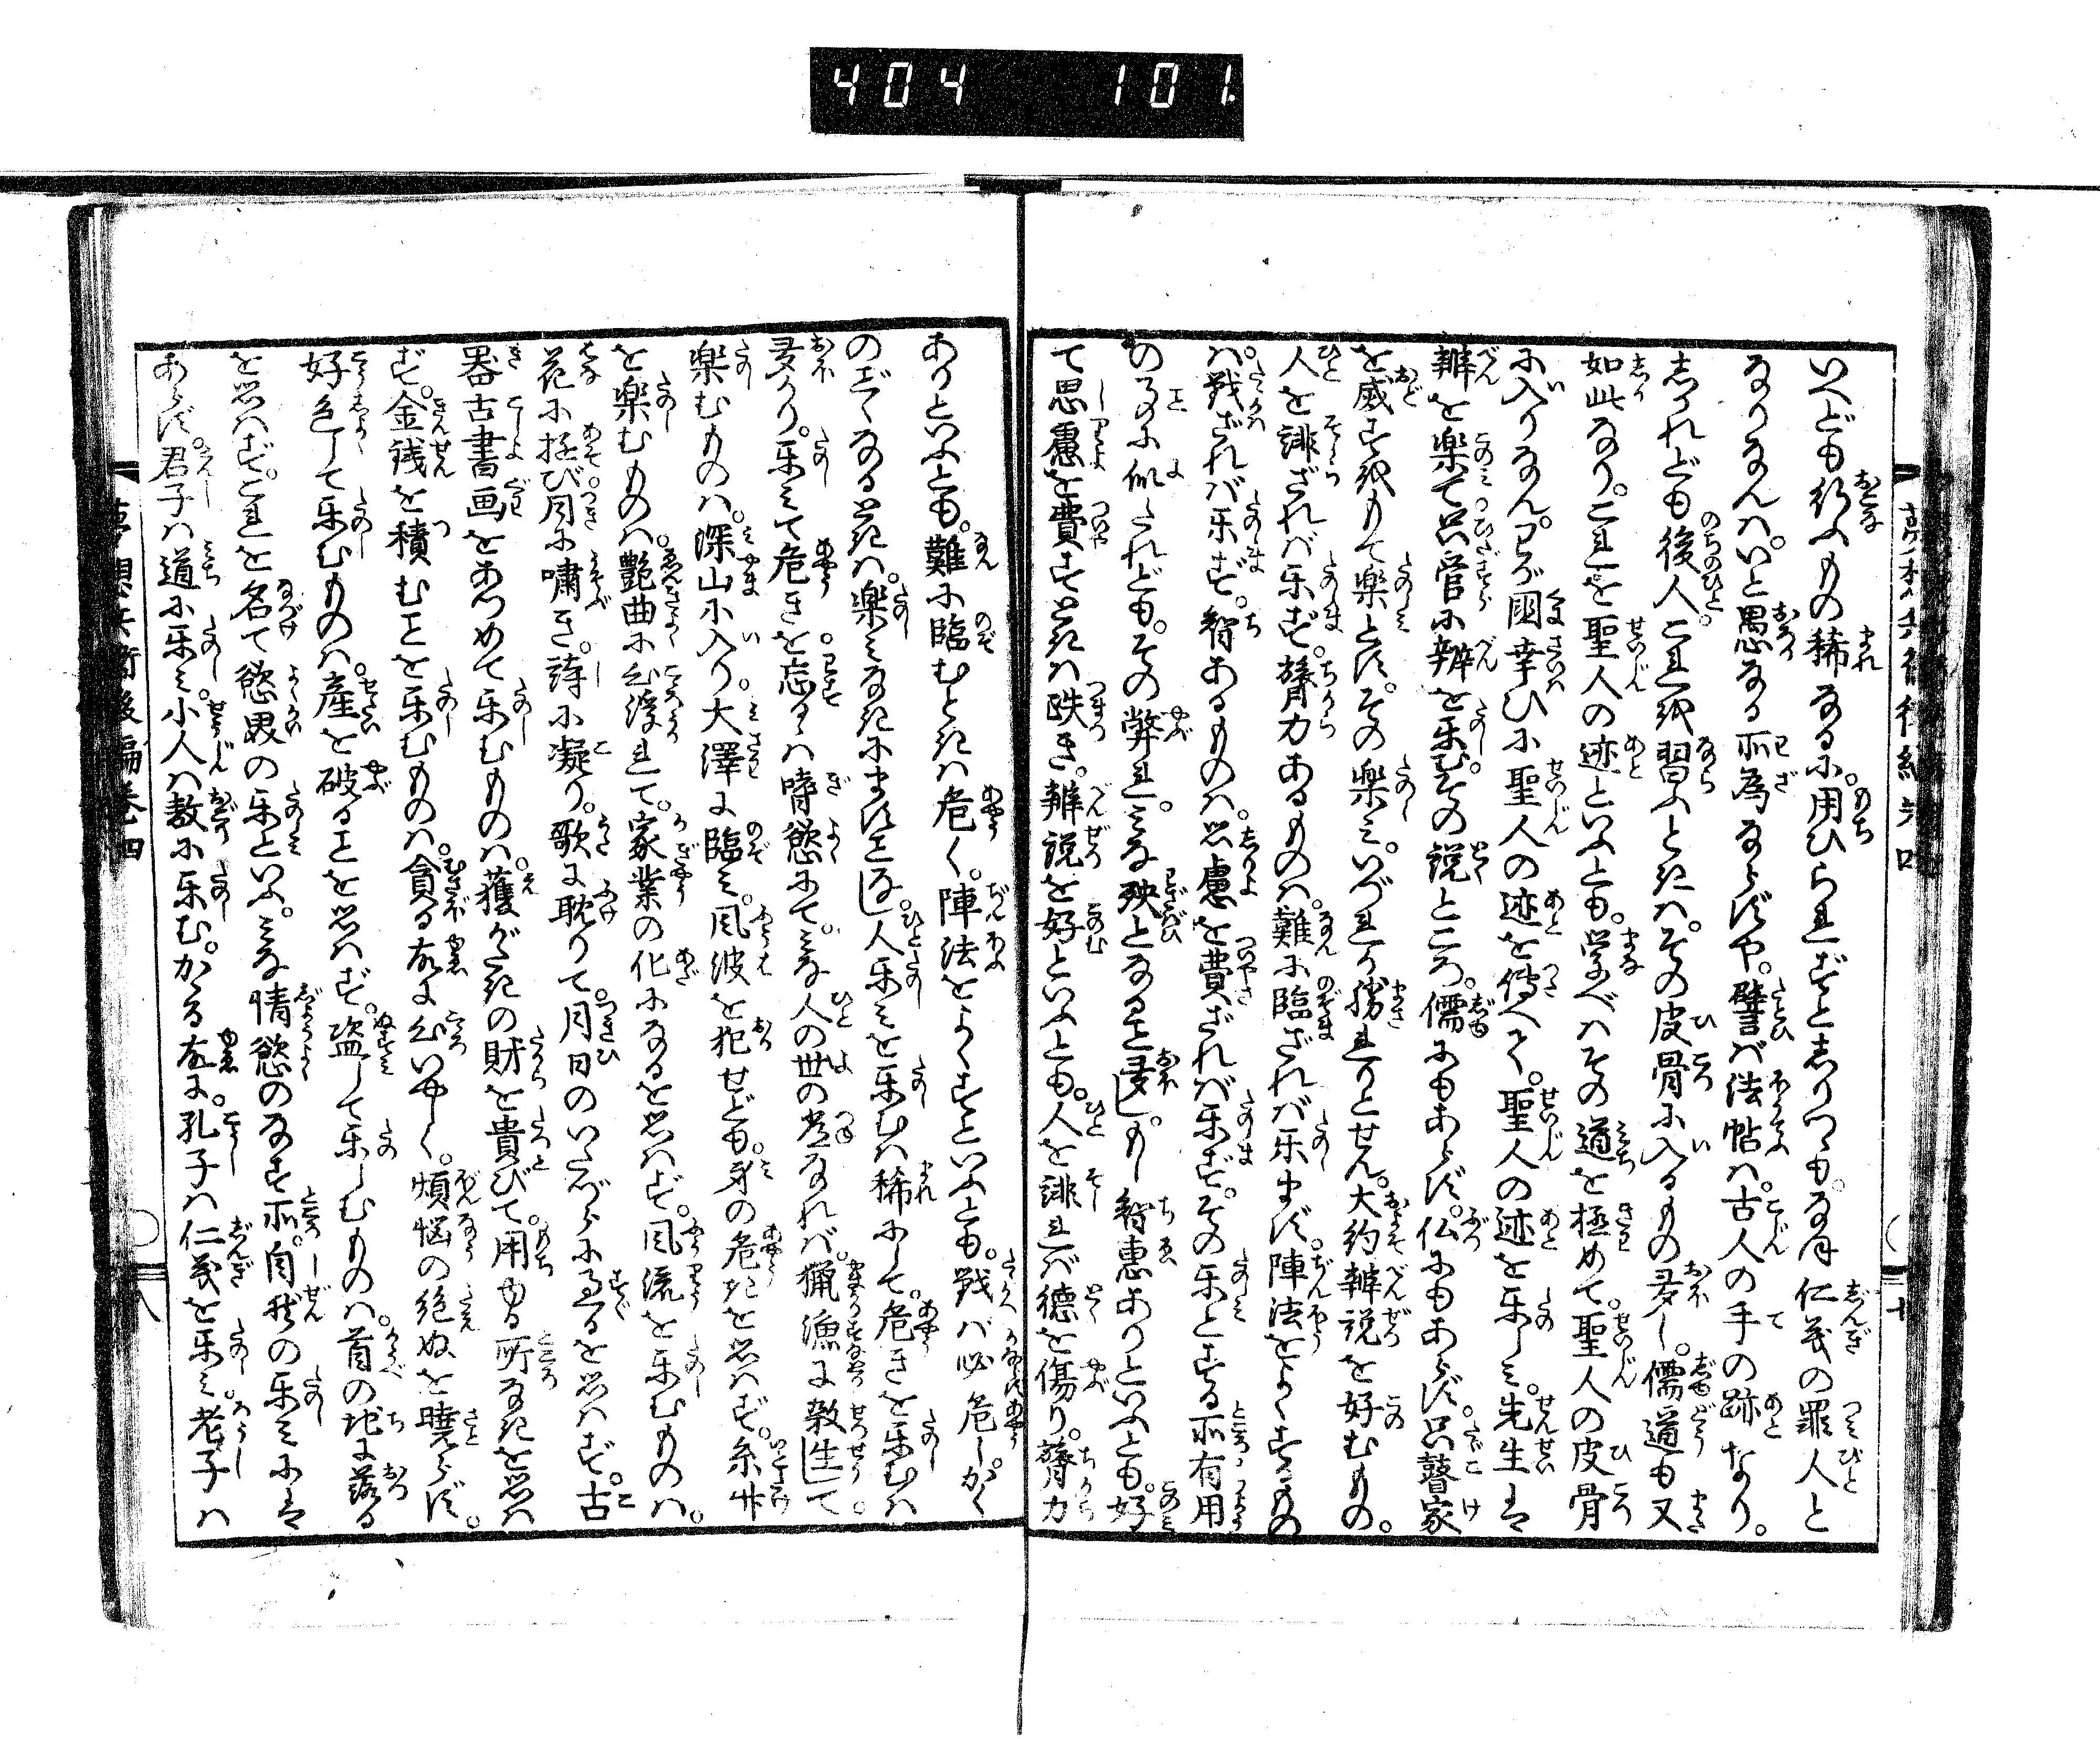 404 101
いへども行ふもの稀なるに。用ひられずとしりつゝも。なほ仁義の罪人と
なりなんは。いと愚なる所為ならずや。譬ば法帖は。古人の手の跡なり。
しかれども後人これを習ふときは。その皮骨に入るもの多し。儒道も又
如此なり。これを聖人の迹といふとも。学べはその道を極めて。聖人の皮骨
に入りなん。わが国幸ひに聖人の迹を傳へて。聖人の迹を楽しみ。先生は
辨を楽て只管に辨を楽む。その説ところ。儒にもあらず。仏にもあらず。只瞽家
を威すをもて楽とす。その楽み。いづれか勝れりとせん。大約辨説を好むもの。
人を誹ざれば楽ず。膂力あるものは。難に臨ざれば楽まず。陣法をよくするもの
は。戦ざれば楽ず。智あるものは。思慮を費ざれば楽ず。その楽とする所有用
のことに似たれども。その弊れ。みな殃となること多し。もし智恵ありといふとも。好
て思慮を費すときは跌き。辨説を好といふとも。人を誹れば徳を傷り。膂力
ありといふとも。難に臨むときは危く。陣法をよくすといふとも。戦ば必危し。かく
のごくなるときは。楽みなきにますことなし。人楽みを楽むは稀にして。危きを楽むは
多かり。楽みて危きを忘るゝは嗜慾にて。みな人の世の常なれば。猟漁に殺生して
楽むものは。深山に入り。大澤に臨み。風波を犯せども。身の危きを思はず。糸竹
を楽むものは。艶曲に心浮れて。家業の化になるを思はず。風流を楽むものは。
花に遊び月に嘯き。詩に凝り。歌に耽りて。月日のいたづらに過るを思はず。古
器古書画をあつめて楽むものは。獲がたきの財を貴びて。用ゆる所なきを思は
ず。金銭を積むことを楽むものは。貪る故に心いやしく。煩悩の絶ぬを暁らず。
好色して楽むものは。産を破ることを思はず。盗して楽しむものは。首の地に落る
を思はず。これを名て慾界の楽といふ。みな情慾のなす所。自然の楽みには
あらず。君子は道に楽み。小人は教に楽む。かゝる故に。孔子は仁義を楽み。老子は
夢想兵衛後編巻四
八